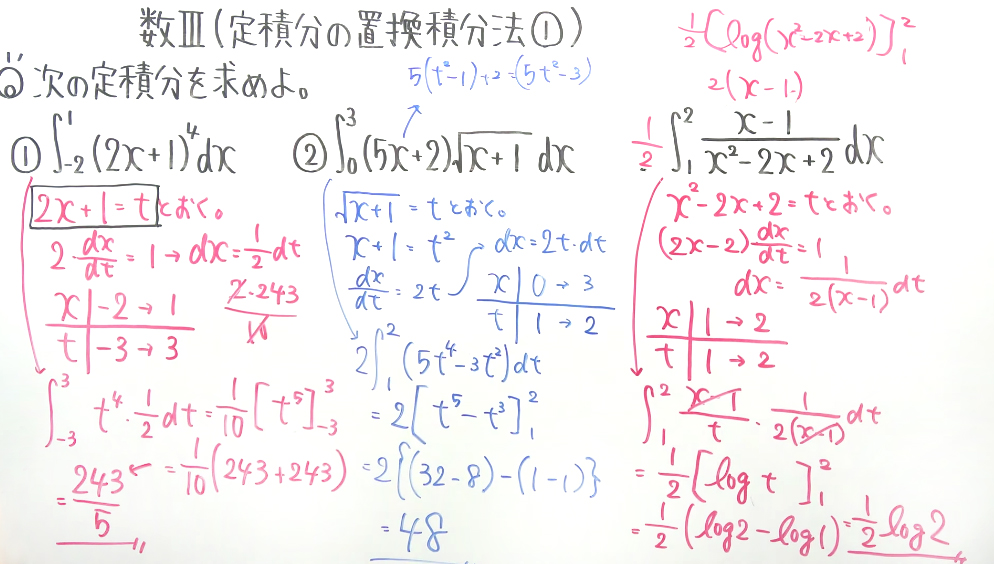 数Ⅲ(定積分の置換積分法①)
次の定積分を求めよ。
① ∫_{-2}^{1} (2x+1)^4 dx
2x+1=tとおく。
2・dx/dt=1→dx=1/2 dt
x|-2→1
t|-3→3
2・243/10
∫_{-3}^{3} t^4・1/2 dt=1/10[t^5]_{-3}^{3}
=1/10(243+243)
=243/5
5(t²-1)+2=(5t²-3)
② ∫_{0}^{3} (5x+2)√(x+1) dx
√(x+1)=tとおく。
x+1=t²
dx/dt=2t
dx=2t・dt
x|0→3
t|1→2
2∫_{1}^{2} (5t^4-3t²)dt
=2[t^5-t³]_{1}^{2}
=2{(32-8)-(1-1)}
=48
1/2[log(x²-2x+2)]_{1}^{2}
2(x-1)
1/2 ∫_{1}^{2} (x-1)/(x²-2x+2) dx
x²-2x+2=tとおく。
(2x-2)dx/dt=1
dx=1/(2(x-1)) dt
x|1→2
t|1→2
∫_{1}^{2} (x-1)/t・1/(2(x-1)) dt
=1/2[log t]_{1}^{2}
=1/2(log2-log1)=1/2 log2